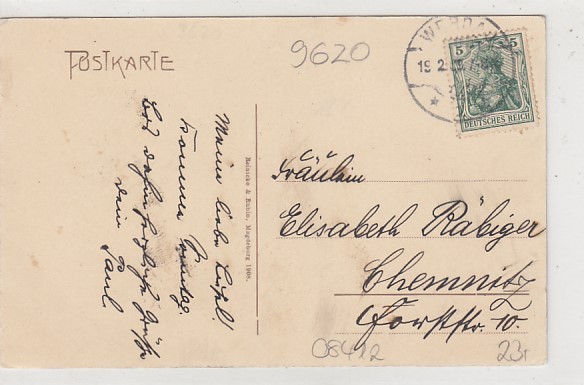 9620
POSTKARTE
WERDA
19 2
5 5
DEUTSCHES REICH
Meine liebe
komme Sonntag.
Bis dahin herzliche Grüße
dein Paul
Reinicke & Rubin, Magdeburg 1908.
Fräulein
Elisabeth Räbiger
Chemnitz
Forststr. 10.
08412
23,